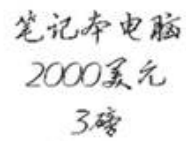 笔记本电脑
2000美元
3磅